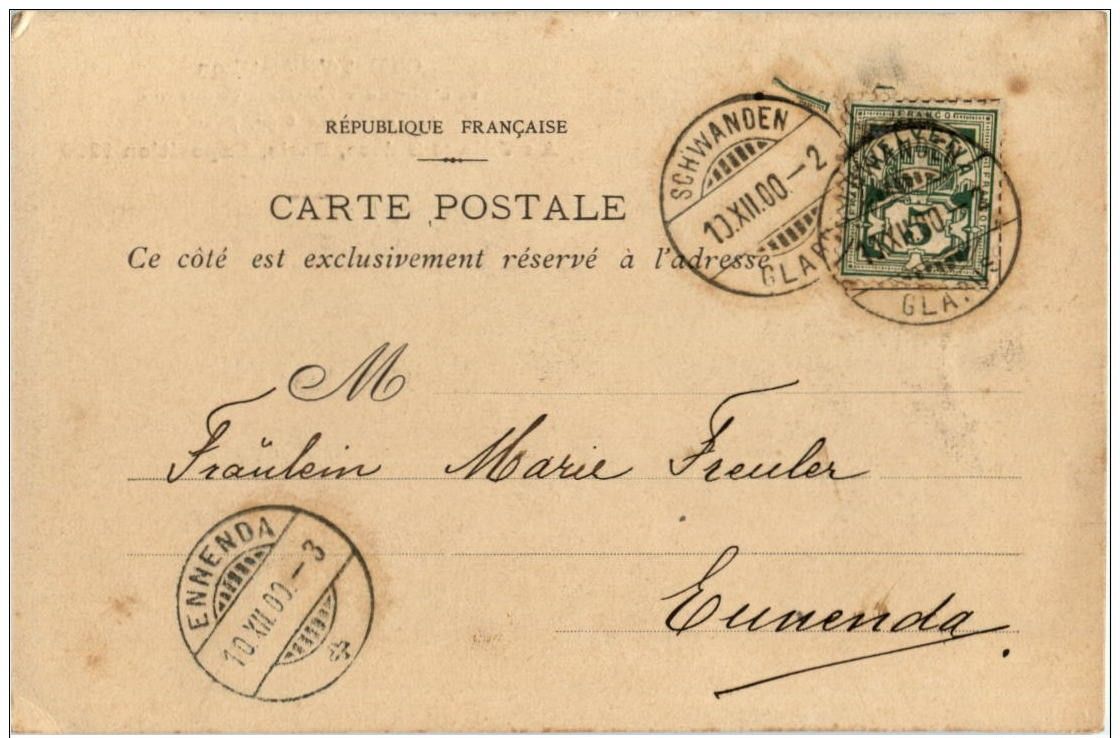 RÉPUBLIQUE FRANÇAISE
CARTE POSTALE
Ce côté est exclusivement réservé à l'adresse
SCHWANDEN
10.XII.00.–2
GLARUS
FRANCO
5
GLARUS
M
Fräulein Marie Freuler
Ennenda
ENNENDA
10.XII.00.–3